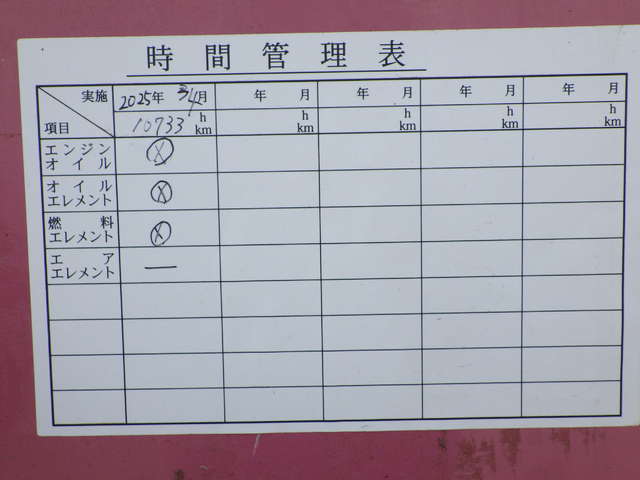 時間管理表
実施 2025年 3/4月 年 月 年 月 年 月 年 月
項目 10733 h km h km h km h km h km
エンジンオイル ⓧ
オイルエレメント ⓧ
燃料エレメント ⓧ
エアエレメント —